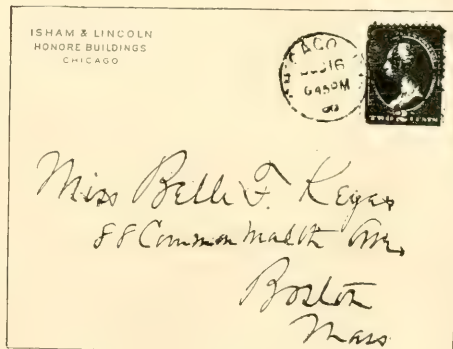 ISHAM & LINCOLN
HONORE BUILDINGS
CHICAGO
CHICAGO
16
645PM
TWO 2 CENTS
Miss Belle F. Keyes
88 Commonwealth Ave,
Boston
Mass